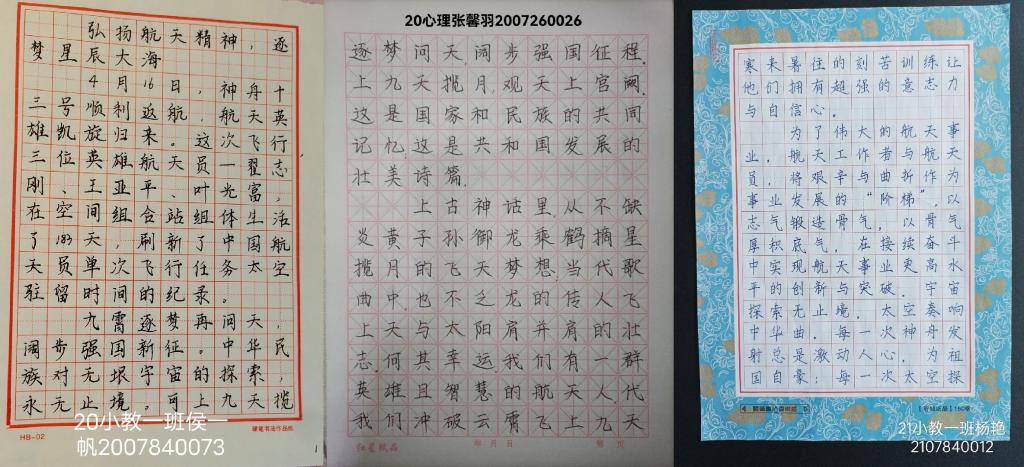 弘扬航天精神,逐
梦星辰大海
4月16日,神舟十
三号顺利返航,航天英
雄凯旋归来。这次飞行
三位英雄航天员一翟志
刚、王亚平、叶光富,
在空间组合站组体生活
了183天,刷新了中国航
天员单次飞行任务太空
驻留时间的纪录。
九霄逐梦再问天,
阔步强国新征。中华民
族对无垠宇宙的探索,
永无止境。可上九天揽
HB-02
硬笔书法作品纸
1
20小教一班侯一
帆2007840073
20心理张馨羽2007260026
逐梦问天,阔步强国征程.
上九天揽月,观天上宫阙.
这是国家和民族的共同
记忆,这是共和国发展的
壮美诗篇.
上古神话里,从不缺
炎黄子孙御龙乘鹤摘星
揽月的飞天梦想,当代歌
曲中,也不乏龙的传人飞
上天与太阳肩并肩的壮
志.何其幸运,我们有一群
英雄且智慧的航天人代
我们冲破云霄飞上九天
红星纸品
年 月 日
第 页
寒来暑往的刻苦训练让
他们拥有超强的意志力
与自信心。
为了伟大的航天事
业,航天工作者与航天
员,将艰辛与曲折作为
事业发展的“阶梯”,以
志气锻造骨气,以骨气
厚积底气,在接续奋斗
中实现航天事业更高水
平的创新与突破。宇宙
探索无止境,太空奏响
中华曲。每一次神舟发
射总是激动人心,为祖
国自豪;每一次太空探
21小教一班杨艳
2107840012